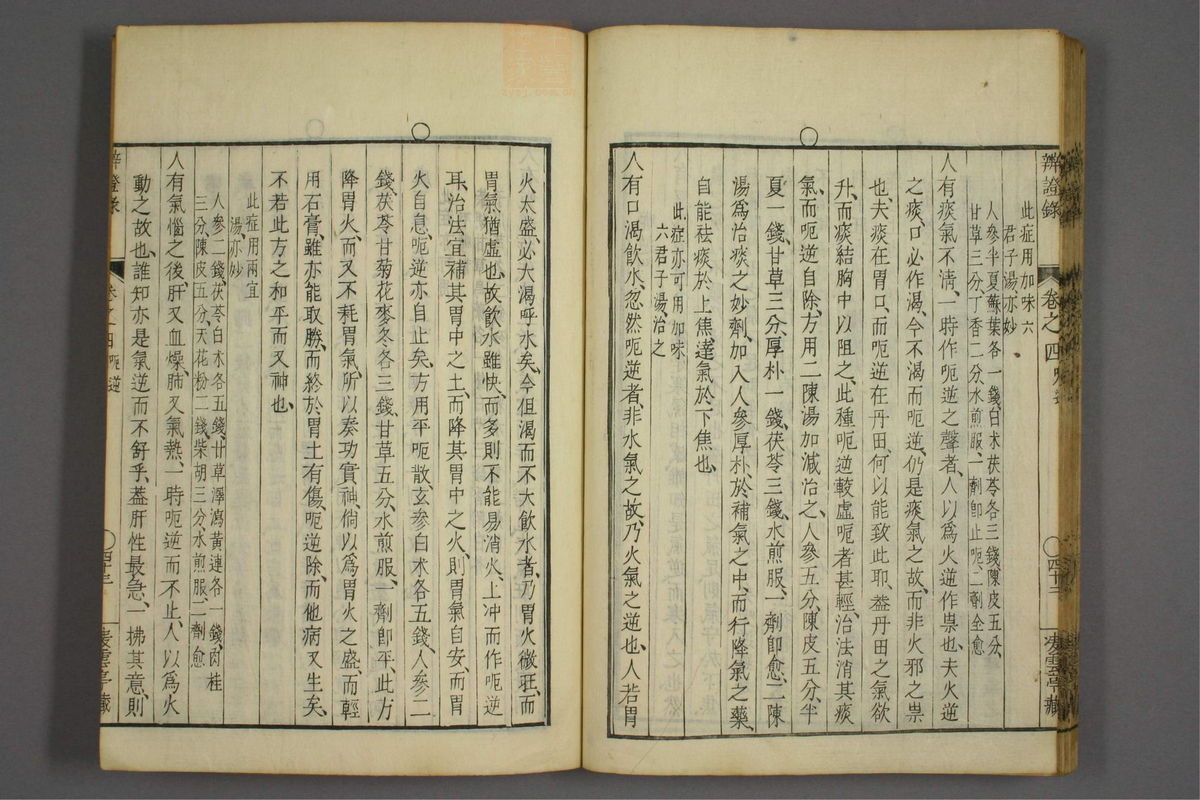 辨證錄
卷之四 呃逆
四十三
凌雲亭藏
此症用加味六
君子湯亦妙
人參半夏蘇葉各一錢白朮茯苓各三錢陳皮五分
甘草三分丁香二分水煎服一劑卽止呃二劑全愈
人有痰氣不淸一時作呃逆之聲者人以爲火逆作祟也夫火逆
之痰口必作渴今不渴而呃逆仍是痰氣之故而非火邪之祟
也夫痰在胃口而呃逆在丹田何以能致此耶葢丹田之氣欲
升而痰結胸中以阻之此種呃逆較虛呃者甚輕治法消其痰
氣而呃逆自除方用二陳湯加減治之人參五分陳皮五分半
夏一錢甘草三分厚朴一錢茯苓三錢水煎服一劑卽愈二陳
湯爲治痰之妙劑加入人參厚朴於補氣之中而行降氣之藥
自能祛痰於上焦達氣於下焦也
此症亦可用加味
六君子湯治之
人有口渴飮水忽然呃逆者非水氣之故乃火氣之逆也人若胃
火太盛必大渴呼水矣今但渴而不大飮水者乃胃火微旺而
胃氣猶虛也故飮水雖快而多則不能易消火上冲而作呃逆
耳治法宜補其胃中之土而降其胃中之火則胃氣自安而胃
火自息呃逆亦自止矣方用平呃散玄參白朮各五錢人參二
錢茯苓甘菊花麥冬各三錢甘草五分水煎服一劑卽平此方
降胃火而又不耗胃氣所以奏功實神倘以爲胃火之盛而輕
用石膏雖亦能取勝而終於胃土有傷呃逆除而他病又生矣
不若此方之和平而又神也
此症用兩宜
湯亦妙
人參二錢茯苓白朮各五錢甘草澤瀉黃連各一錢肉桂
三分陳皮五分天花粉二錢柴胡三分水煎服二劑愈
人有氣惱之後肝又血燥肺又氣熱一時呃逆而不止人以爲火
動之故也誰知亦是氣逆而不舒乎葢肝性最急一拂其意則
辨證錄
卷之四 呃逆
凌雲亭藏